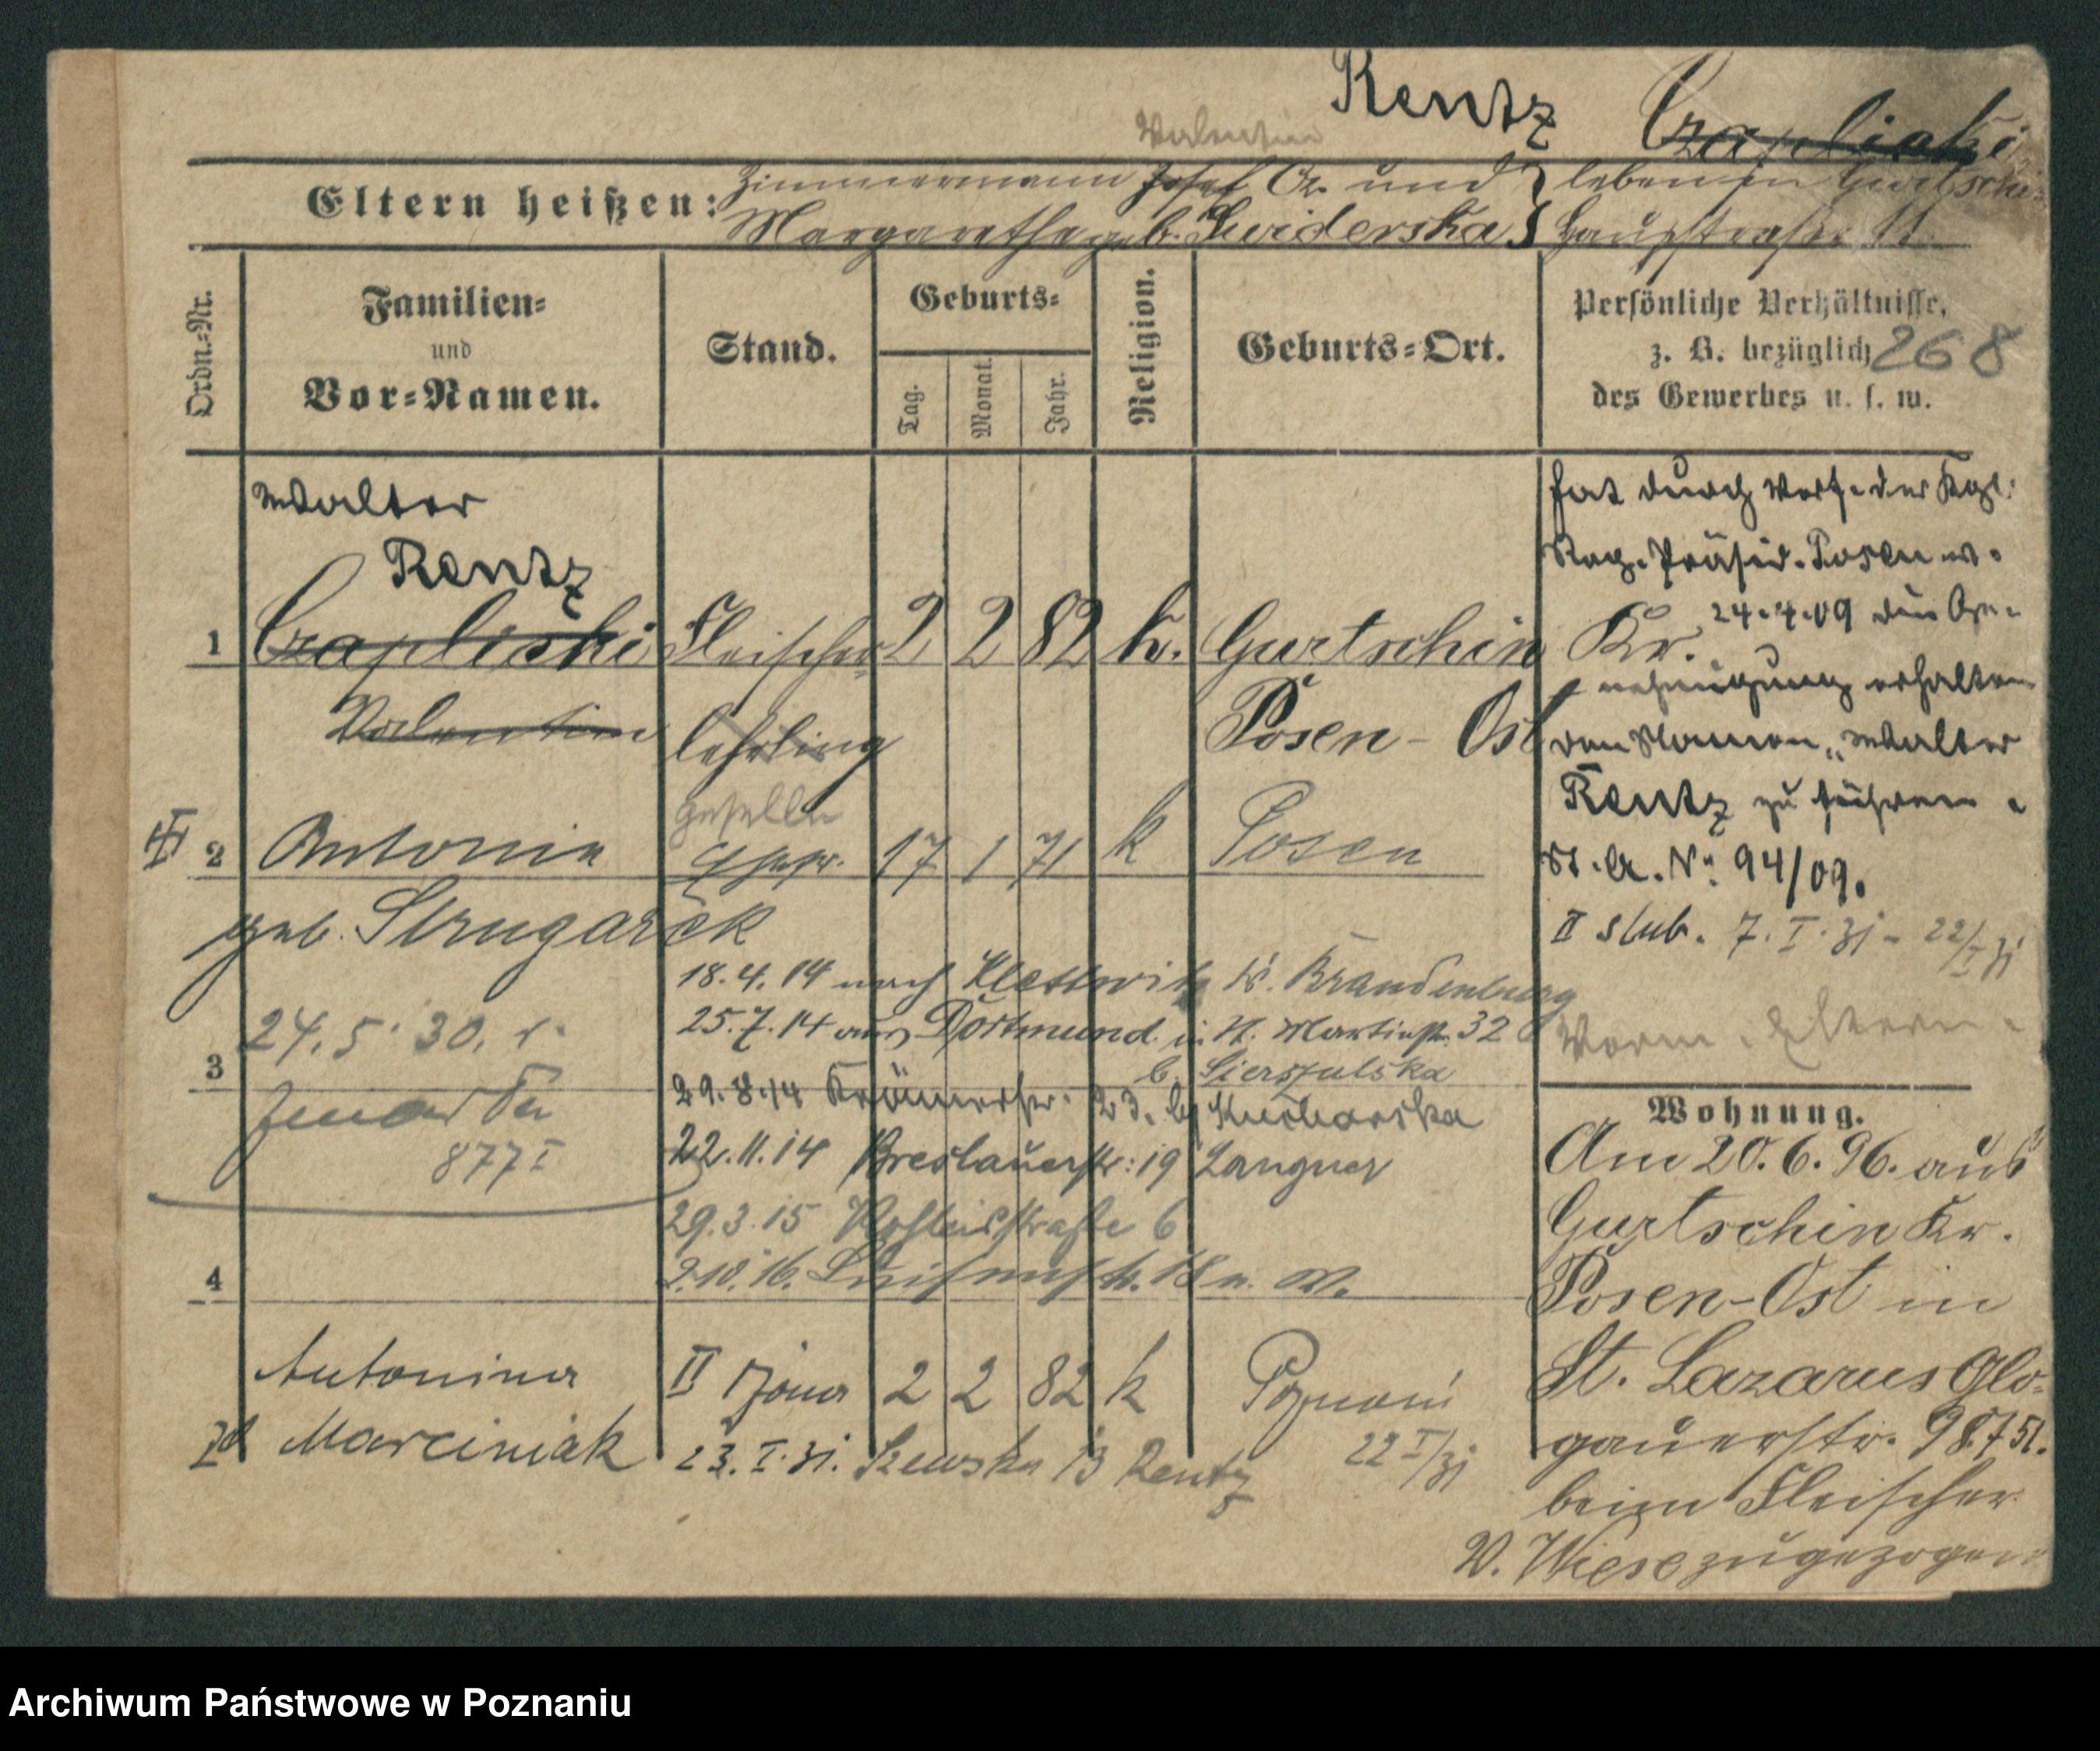 Rentz Czapliski
Valentin
Eltern heißen: Zimmermann Josef Cz. und } leben in Gurtschin
Margarethe geb. Swiderska } Hauptstraße 11.
Ordn.-Nr.
Familien-
und
Vor-Namen.
Stand.
Geburts-
Tag.
Monat.
Jahr.
Religion.
Geburts-Ort.
Persönliche Verhältnisse,
z. B. bezüglich 268
des Gewerbes u. s. w.
Walter
Rentz
1 Czapliski Fleischer- 2 2 82 k. Gurtschin Kr.
Valentin lehrling Posen-Ost
geselle
2 Antonie Ehefr. 17 1 71 k Posen
geb. Strugarek
hat durch Verf. der Kgl.
Reg. Präsid. Posen v.
24.4.09 die Ge-
nehmigung erhalten
den Namen „Walter
Rentz zu führen.
St. A. No. 94/09.
II slub. 7. I. 31 - 22/I 31
Vorm. Eltern.
18.4.14 nach Klettwitz K. Brandenburg
25.7.14 aus Dortmund in St. Martinstr. 32
b. Sierszulska
24.5.30.
3
877 I
29.8.14 23. b/ Kucharska
22.11.14 Breslauerstr. 19 Langner
29.3.15 6
4 2.10.16. Luisenstr. 18
Antonina II żona 2 2 82 k Poznań
zd Marciniak 23. I. 31. Szewska 13 Rentz 22 I/31
Wohnung.
Am 20.6.96. aus
Gurtschin Kr.
Posen-Ost in
St. Lazarus Glo-
gauerstr.
beim Fleischer
W. Wiese zugezogen
Archiwum Państwowe w Poznaniu